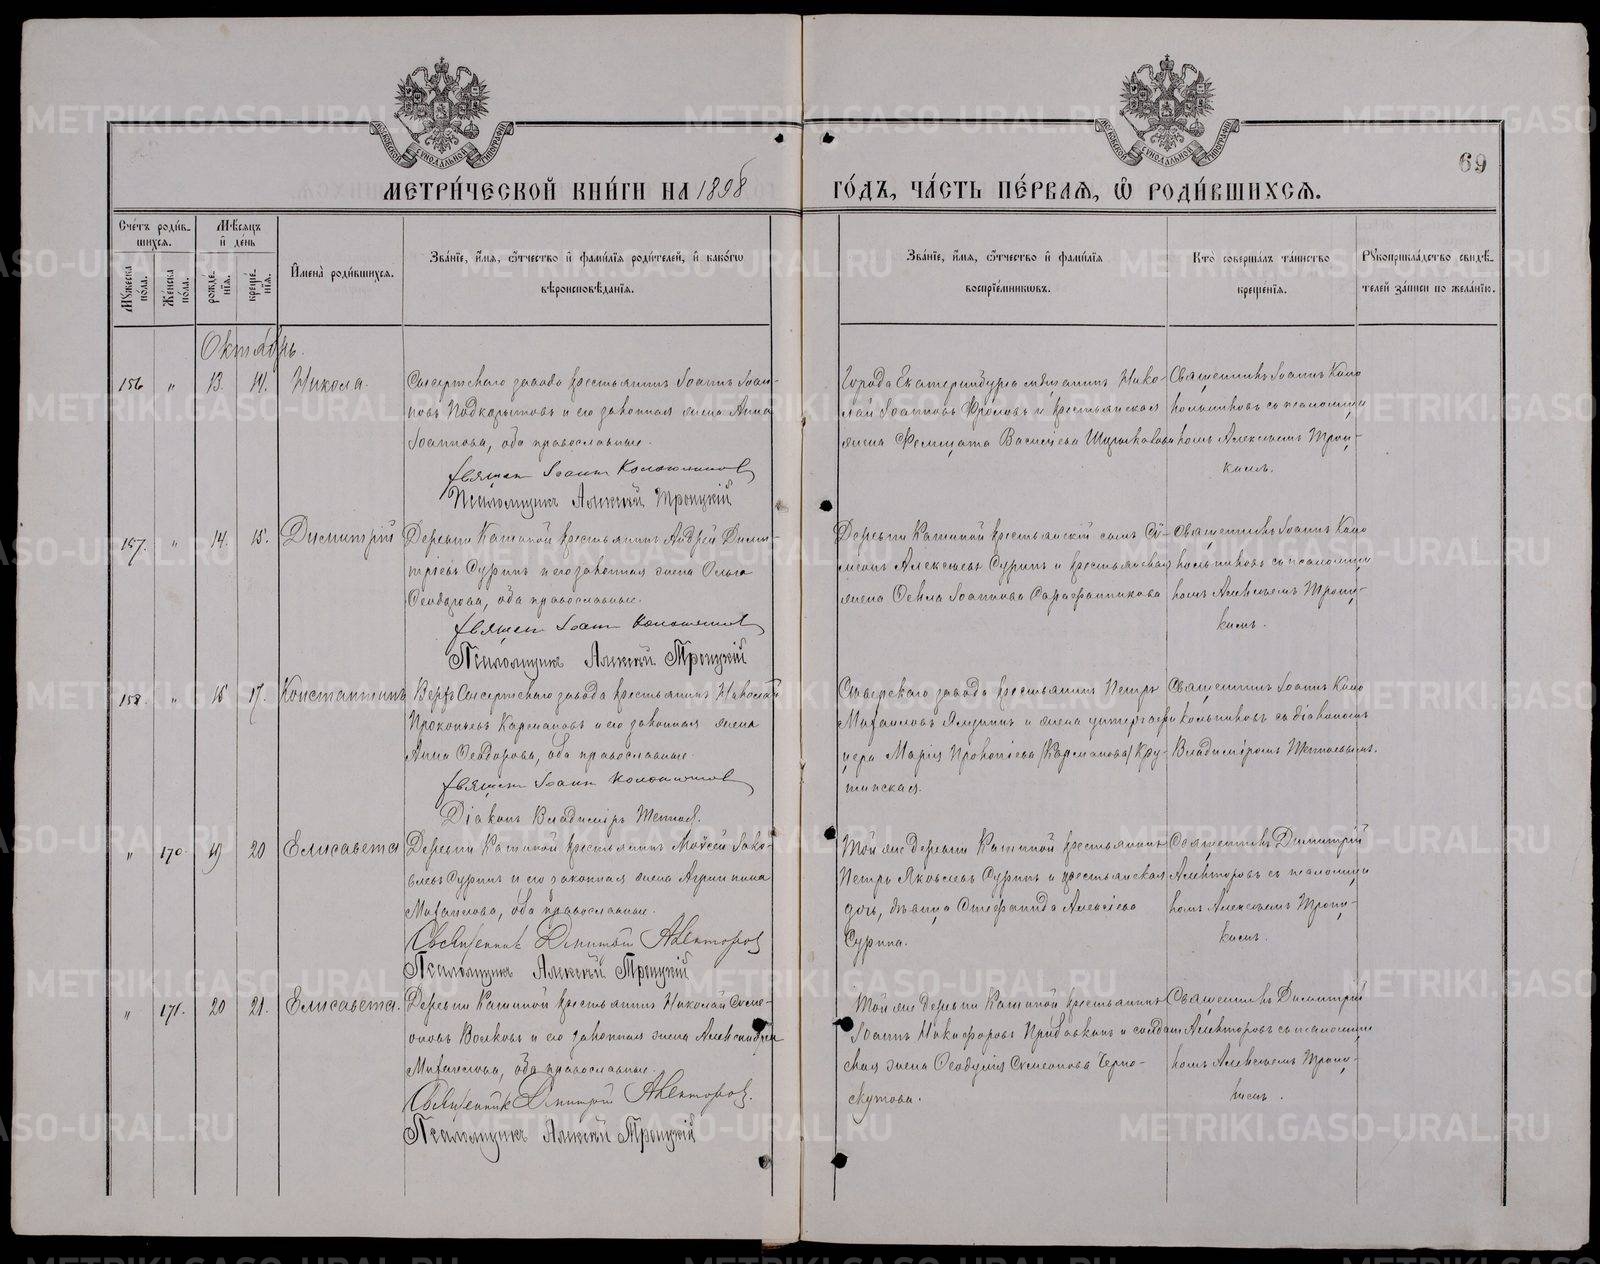 69
МЕТРИ́ЧЕСКОЙ КНИ́ГИ НА 1898 ГО́ДЪ, ЧА́СТЬ ПЕ́РВАѦ, Ѿ РОДИ́ВШИХСѦ.
Сче́тъ роди́в-
шихсѧ.
Мѣ́сѧцъ
и҆ де́нь
Мꙋ́жеска по́ла.
Же́нска по́ла.
рожде́-
нїѧ.
креще́-
нїѧ.
И҆мена̀ роди́вшихсѧ.
Зва́нїе, и҆́мѧ, ѻ҆́тчество и҆ фами́лїѧ роди́телей, и҆ како́гѡ
вѣроисповѣ́данїѧ.
Зва́нїе, и҆́мѧ, ѻ҆́тчество и҆ фами́лїѧ
воспрїе́мникѡвъ.
Кто̀ соверша́лъ та́инство
креще́нїѧ.
Рꙋкоприкла́дство свидѣ́-
телей за́писи по жела́нїю.
Октябрь.
156 „ 13. 14. Никола.
Сысертскаго завода крестьянинъ Іоаннъ Іоан-
новъ Подкорытовъ и его законная жена Анна
Іоаннова, оба православные.
Священ Іоанн Колокольников
Псаломщикъ Алексѣй Троицкій
Города Екатеринбурга мѣщанинъ Нико-
лай Іоанновъ Фроловъ и крестьянская
жена Васильева
Священникъ Іоаннъ Коло
кольниковъ съ псаломщи
комъ Алексѣемъ Трои-
кимъ.
157. „ 14. 15. Димитрій
Деревни Кашиной крестьянинъ Андрей Дими-
тріевъ Суринъ и его законная жена Ольга
Ѳеодорова, оба православные.
Священ Іоанн Колокольников
Псаломщикъ Алексѣй Троицкій
Деревни Кашиной крестьянскій сынъ Си-
меонъ Алексѣевъ Суринъ и крестьянская
жена Іоаннова Сарафанникова
Священникъ Іоаннъ Коло
кольниковъ съ псаломщи
комъ Алексѣемъ Троиц-
кимъ.
158. „ 16 17. Константинъ
Верх Сысертскаго завода крестьянинъ Николай
Прокопьевъ Кармановъ и его законная жена
Анна Ѳеодорова, оба православные
Священ Іоанн Колокольников
Діаконъ Владиміръ
Сѣверскаго завода крестьянинъ Петръ
Михаиловъ и жена унтеръ-офи
цера Марія Прокопіева (Карманова) Кру-
тинская.
Священникъ Іоаннъ Коло
кольниковъ съ діакономъ
Владиміромъ
„ 170. 19 20 Елисавета
Деревни Кашиной крестьянинъ Моисей Іако-
влевъ Суринъ и его законная жена Агриппина
Михаилова, оба православные.
Священник Димитрій Алекторов
Псаломщикъ Алексѣй Троицкій
Той же деревни Кашиной крестьянинъ
Петръ Яковлевъ Суринъ и крестьянская
дочь, дѣвица Стефанида Алексіева
Сурина.
Священникъ Димитрій
Алекторовъ съ псаломщи
комъ Алексѣемъ Троиц-
кимъ.
„ 171. 20 21. Елисавета.
Деревни Кашиной крестьянинъ Николай Симе-
оновъ Волковъ и его законная жена Александра
Михаилова, оба православные.
Священник Димитрій Алекторов.
Псаломщикъ Алексѣй Троицкій
Той же деревни Кашиной крестьянинъ
Іоаннъ Никифоровъ и солдат-
ская жена Симеонова Черно-
скутова.
Священникъ Димитрій
Алекторовъ съ псаломщи
комъ Алексѣемъ Троиц-
кимъ.
METRIKI.GASO-URAL.RU